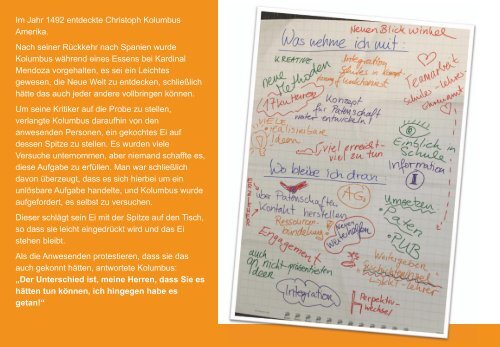 Im Jahr 1492 entdeckte Christoph Kolumbus
Amerika.
Nach seiner Rückkehr nach Spanien wurde
Kolumbus während eines Essens bei Kardinal
Mendoza vorgehalten, es sei ein Leichtes
gewesen, die Neue Welt zu entdecken, schließlich
hätte das auch jeder andere vollbringen können.
Um seine Kritiker auf die Probe zu stellen,
verlangte Kolumbus daraufhin von den
anwesenden Personen, ein gekochtes Ei auf
dessen Spitze zu stellen. Es wurden viele
Versuche unternommen, aber niemand schaffte es,
diese Aufgabe zu erfüllen. Man war schließlich
davon überzeugt, dass es sich hierbei um ein
unlösbare Aufgabe handelte, und Kolumbus wurde
aufgefordert, es selbst zu versuchen.
Dieser schlägt sein Ei mit der Spitze auf den Tisch,
so dass sie leicht eingedrückt wird und das Ei
stehen bleibt.
Als die Anwesenden protestieren, dass sie das
auch gekonnt hätten, antwortete Kolumbus:
„Der Unterschied ist, meine Herren, dass Sie es
hätten tun können, ich hingegen habe es
getan!“
Neuen Blickwinkel
Was nehme ich mit:
KREATIVE
neue Methoden
Integration
Teamarbeit
Konzept
für Patenschaft
weiter entwickeln!
VIELE
realisierbare
Ideen
viel erreicht
viel zu tun
Einblick in
Schule
Information
Wo bleibe ich dran
AG
über Patenschaften
Kontakt herstellen
Ressourcen-
bündelung
umsetzen
Paten
PUR
Engagement
auch
an nicht-präsentierten
Ideen
Weitergeben
-Lehrer
Integration
Perspektiv-
wechsel